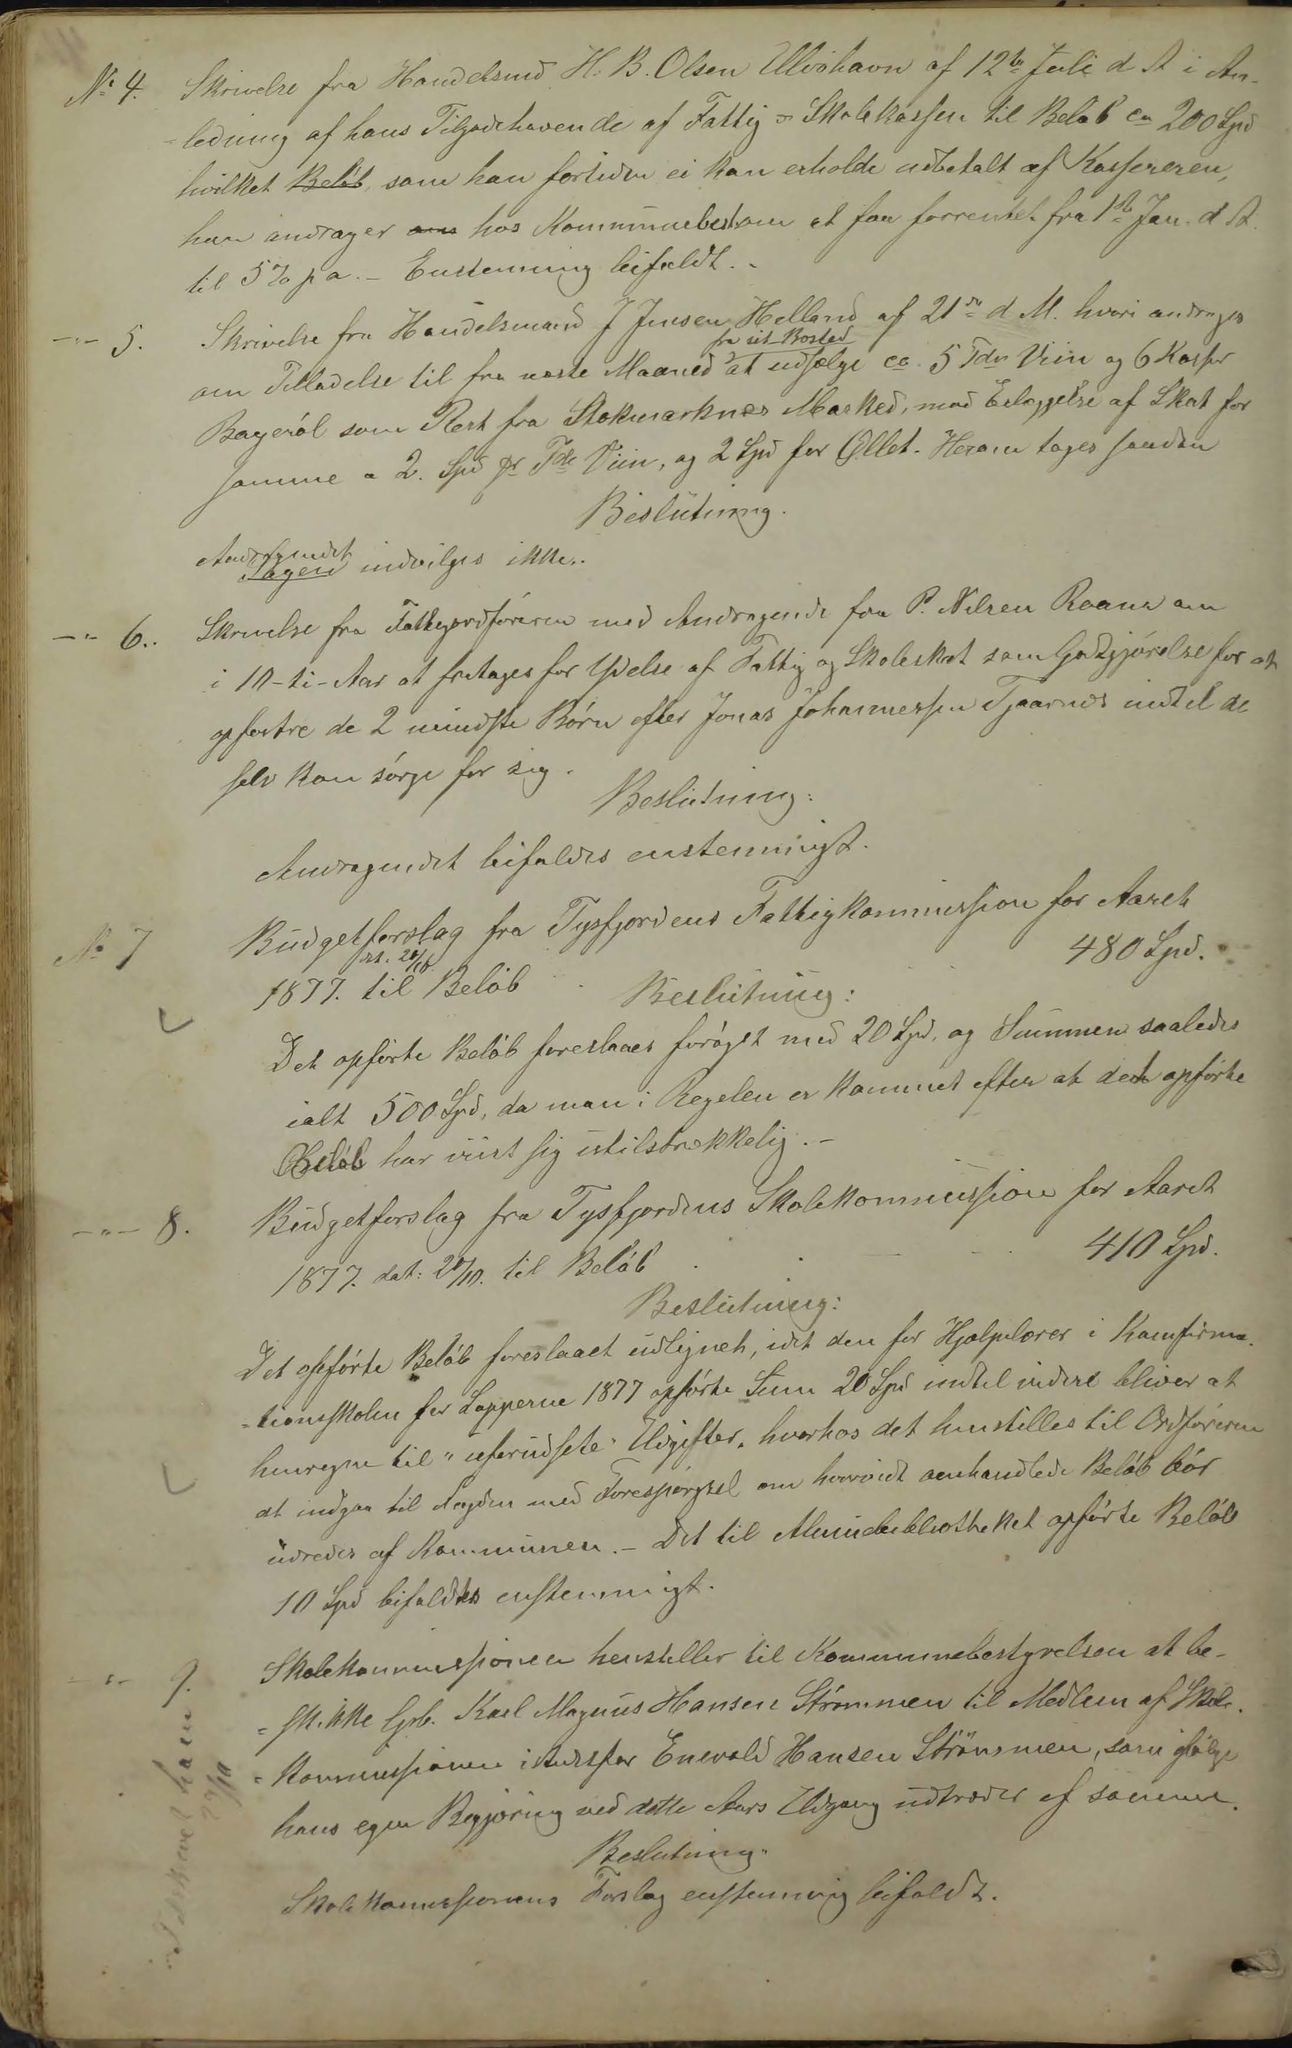 No 4. Skrivelse fra Handelsmd H. B. Olsen Ulvøhavn af 12te Juli d A i An-
-ledning af hans Tilgodehavende af Fattig & Skolekassen til Beløb ca 200 Spd
hvilket Beløb, som han fortiden ei kan erholde udbetalt af Kassereren,
han andrager hos Kommunebest om at faa forrentet fra 1ste Jan. d A.
til 5% p a. - Enstemmig bifaldt. -
-"- 5. Skrivelse fra Handelsmand J Jensen Helland af 21de d M. hvori andrages
fra sit Bosted
om Tilladelse til fra næste Maaned at udsælge ca. 5 Tdr Viin og 6 Kasser
Bayerøl som Rest fra Stokmarknæs Marked, mod Erlæggelse af Skat for
samme a 2. Spd pr Tde Viin, og 2 Spd for Øllet. Herom toges saadan
Beslutning.
Andragendet
Sagen indvilges ikke..
-"- 6.. Skrivelse fra Fattigordføreren med Andragende fra P. Nilsen Raanes om
i 10-ti-Aar at fritages for Ydelse af Fattig og Skoleskat som Godtgjørelse for at
opfostre de 2 mindste Børn efter Jonas Johannessen Tjaarnes indtil de
selv kan sørge for sig.
Beslutning:
Andragendet bifaldes enstemmigt.
No 7 Budgetforslag fra Tysfjordens Fattigkommission for Aaret
1877. til Beløb 480 Spd.
Beslutning:
Det opførte Beløb foreslaaes forøget med 20 Spd, og Summen saaledes
ialt 500 Spd, da man i Regelen er kommet efter at det opførte
Beløb har viist sig utilstrækkelig. -
-"- 8. Budgetforslag fra Tysfjordens Skolekommission for Aaret
1877. dat: 20/10. til Beløb 410 Spd.
Beslutning:
Det opførte Beløb foreslaaet udlignet, idet den for Hjælpelærer i Konfirma-
-tionsskolen for Lapperne 1877 opførte Sum 20 Spd indtil videre bliver at
henregne til "uforudsete" Udgifter, hvorhos det henstilles til Ordføreren
at indgaa til med Forespørgsel om hvorvidt omhandlede Beløb bør
udredes af Kommunen. - Det til Almuebibliotheket opførte Beløb
10 Spd bifaldtes enstemmigt.
-"- 9. Skolekommissionen henstiller til Kommunebestyrelsen at be-
-skikke Grb. Karl Magnus Hansen Strømmen til Medlem af Skole-
-kommissionen istedetfor Enevold Hansen Strømmen, som ifølge
hans egen Begjæring ved dette Aars Udgang udtræder af samme.
Beslutning.
Skolekomissionens Forslag enstemmig bifaldt.
ham